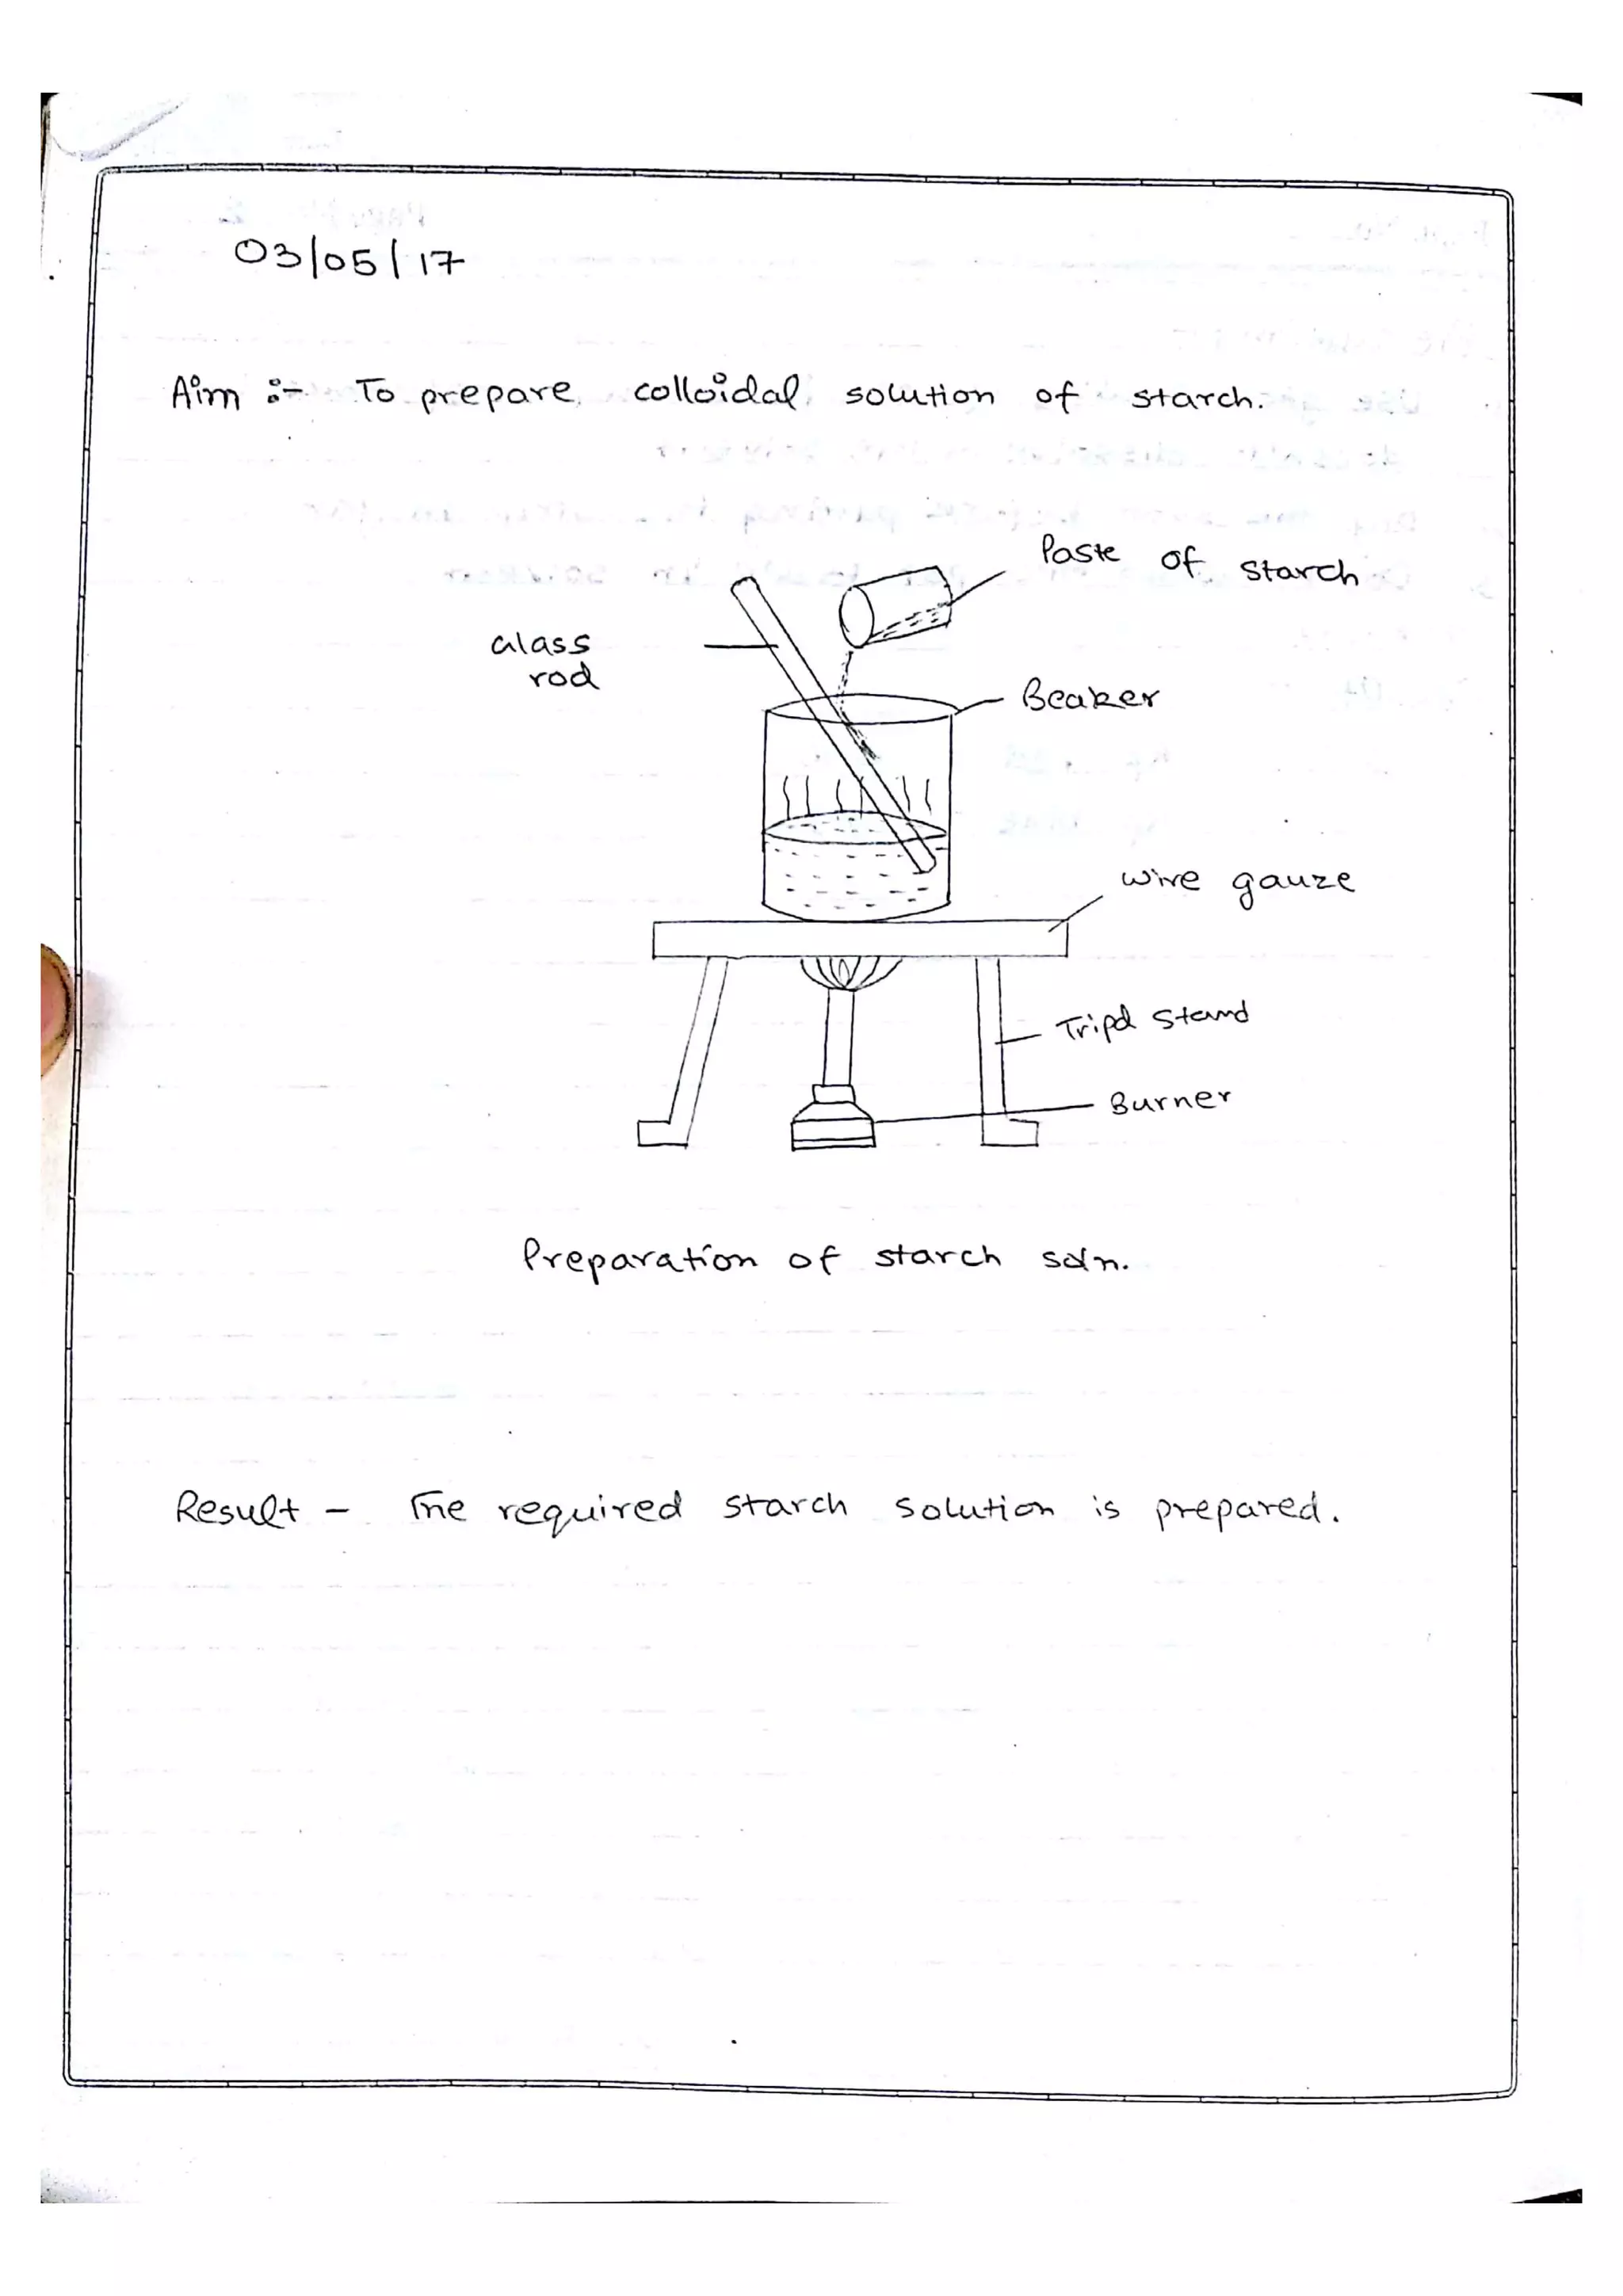 03/05/17
Aim :- To prepare colloidal solution of starch.
Paste of starch
Glass
rod
Beaker
wire gauze
Tripd stand
Burner
Preparation of starch soln.
Result - The required starch solution is prepared.